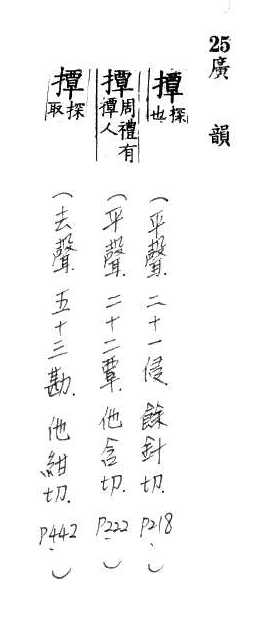 25 廣韻
撢 探也 (平聲. 二十一侵. 餘針切. P218.)
撢 周禮有撢人 (平聲. 二十二覃. 他含切. P222.)
撢 探取 (去聲. 五十三勘. 他紺切. P442.)